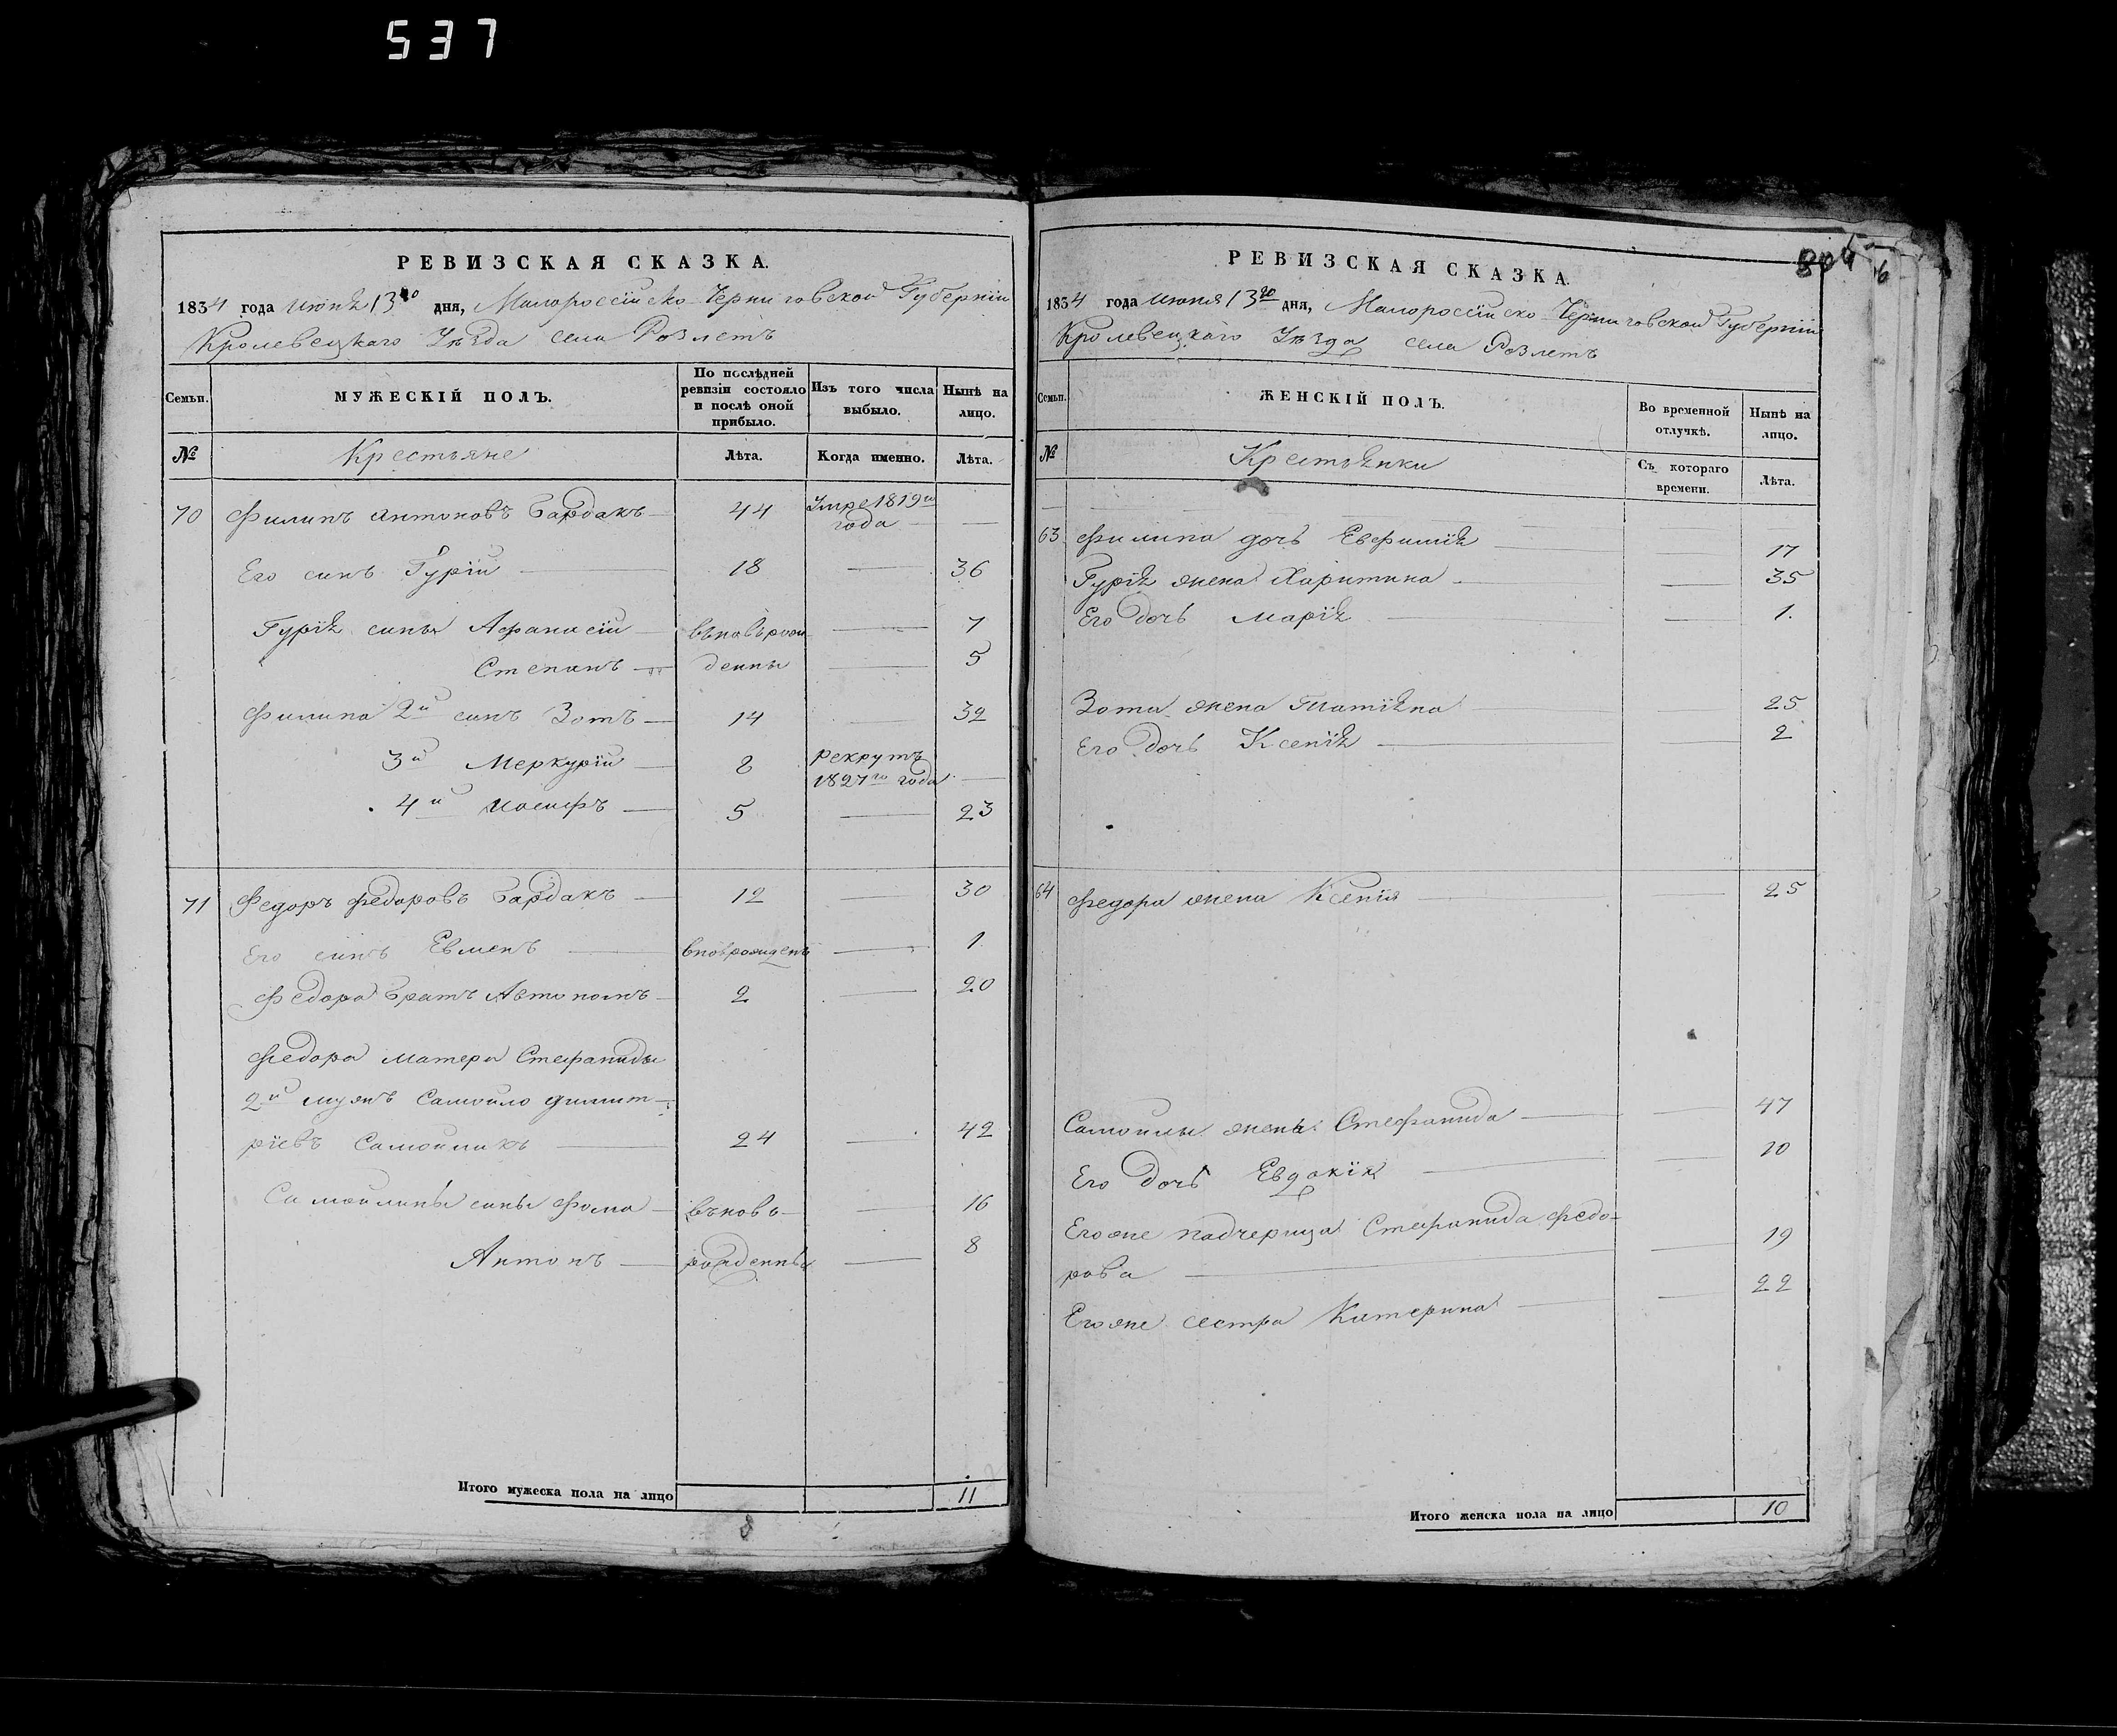 537
РЕВИЗСКАЯ СКАЗКА.
1834 года июня 13го дня, Малороссийско Черниговской Губернии
Кролевецкаго Уѣзда села Розлетъ
Семьи. МУЖЕСКІЙ ПОЛЪ. По послѣдней ревизіи состояло и послѣ оной прибыло. Изъ того числа выбыло. Нынѣ на лицо.
№ Крестьяне Лѣта. Когда именно. Лѣта.
70 Филипъ Антоновъ Бардакъ 44 Умре 1819го года
Его синъ Гурій 18 36
Гурія сины Афанасій вьновьрож 7
Степанъ денны 5
Филипа 2й синъ Зотъ 14 32
3й Меркурій 8 Рекрутъ 1827го года
4й Иосифъ 5 23
71 Федоръ Федоровъ Бардакъ 12 30
Его синъ Евменъ вновьрожденъ 1
Федора братъ Автономъ 2 20
Федора матери Стефаниды
2й мужъ Самойло Димит-
ріевъ Самойликъ 24 42
Самойлины сины Фома вьновь- 16
Антонъ рожденны 8
Итого мужеска пола на лицо 11
8
РЕВИЗСКАЯ СКАЗКА.
1834 года июня 13го дня, Малороссийско Черниговской Губернии
Кролевецкаго Уѣзда села Розлетъ
Семьи. ЖЕНСКІЙ ПОЛЪ. Во временной отлучкѣ. Нынѣ на лицо.
№ Крестьянки Съ котораго времени. Лѣта.
63 Филипа дочь Евфимія 17
Гурія жена Харитина 35
Его дочь Марія 1.
Зота жена Татіяна 25
Его дочь Ксенія 2
64 Федора жена Ксенія 25
Самойлы жена Стефанида 47
Его дочь Евдокія 10
Егоже падчерица Стефанида Федо-
рова 19
Егоже сестра Катерина 22
Итого женска пола на лицо 10